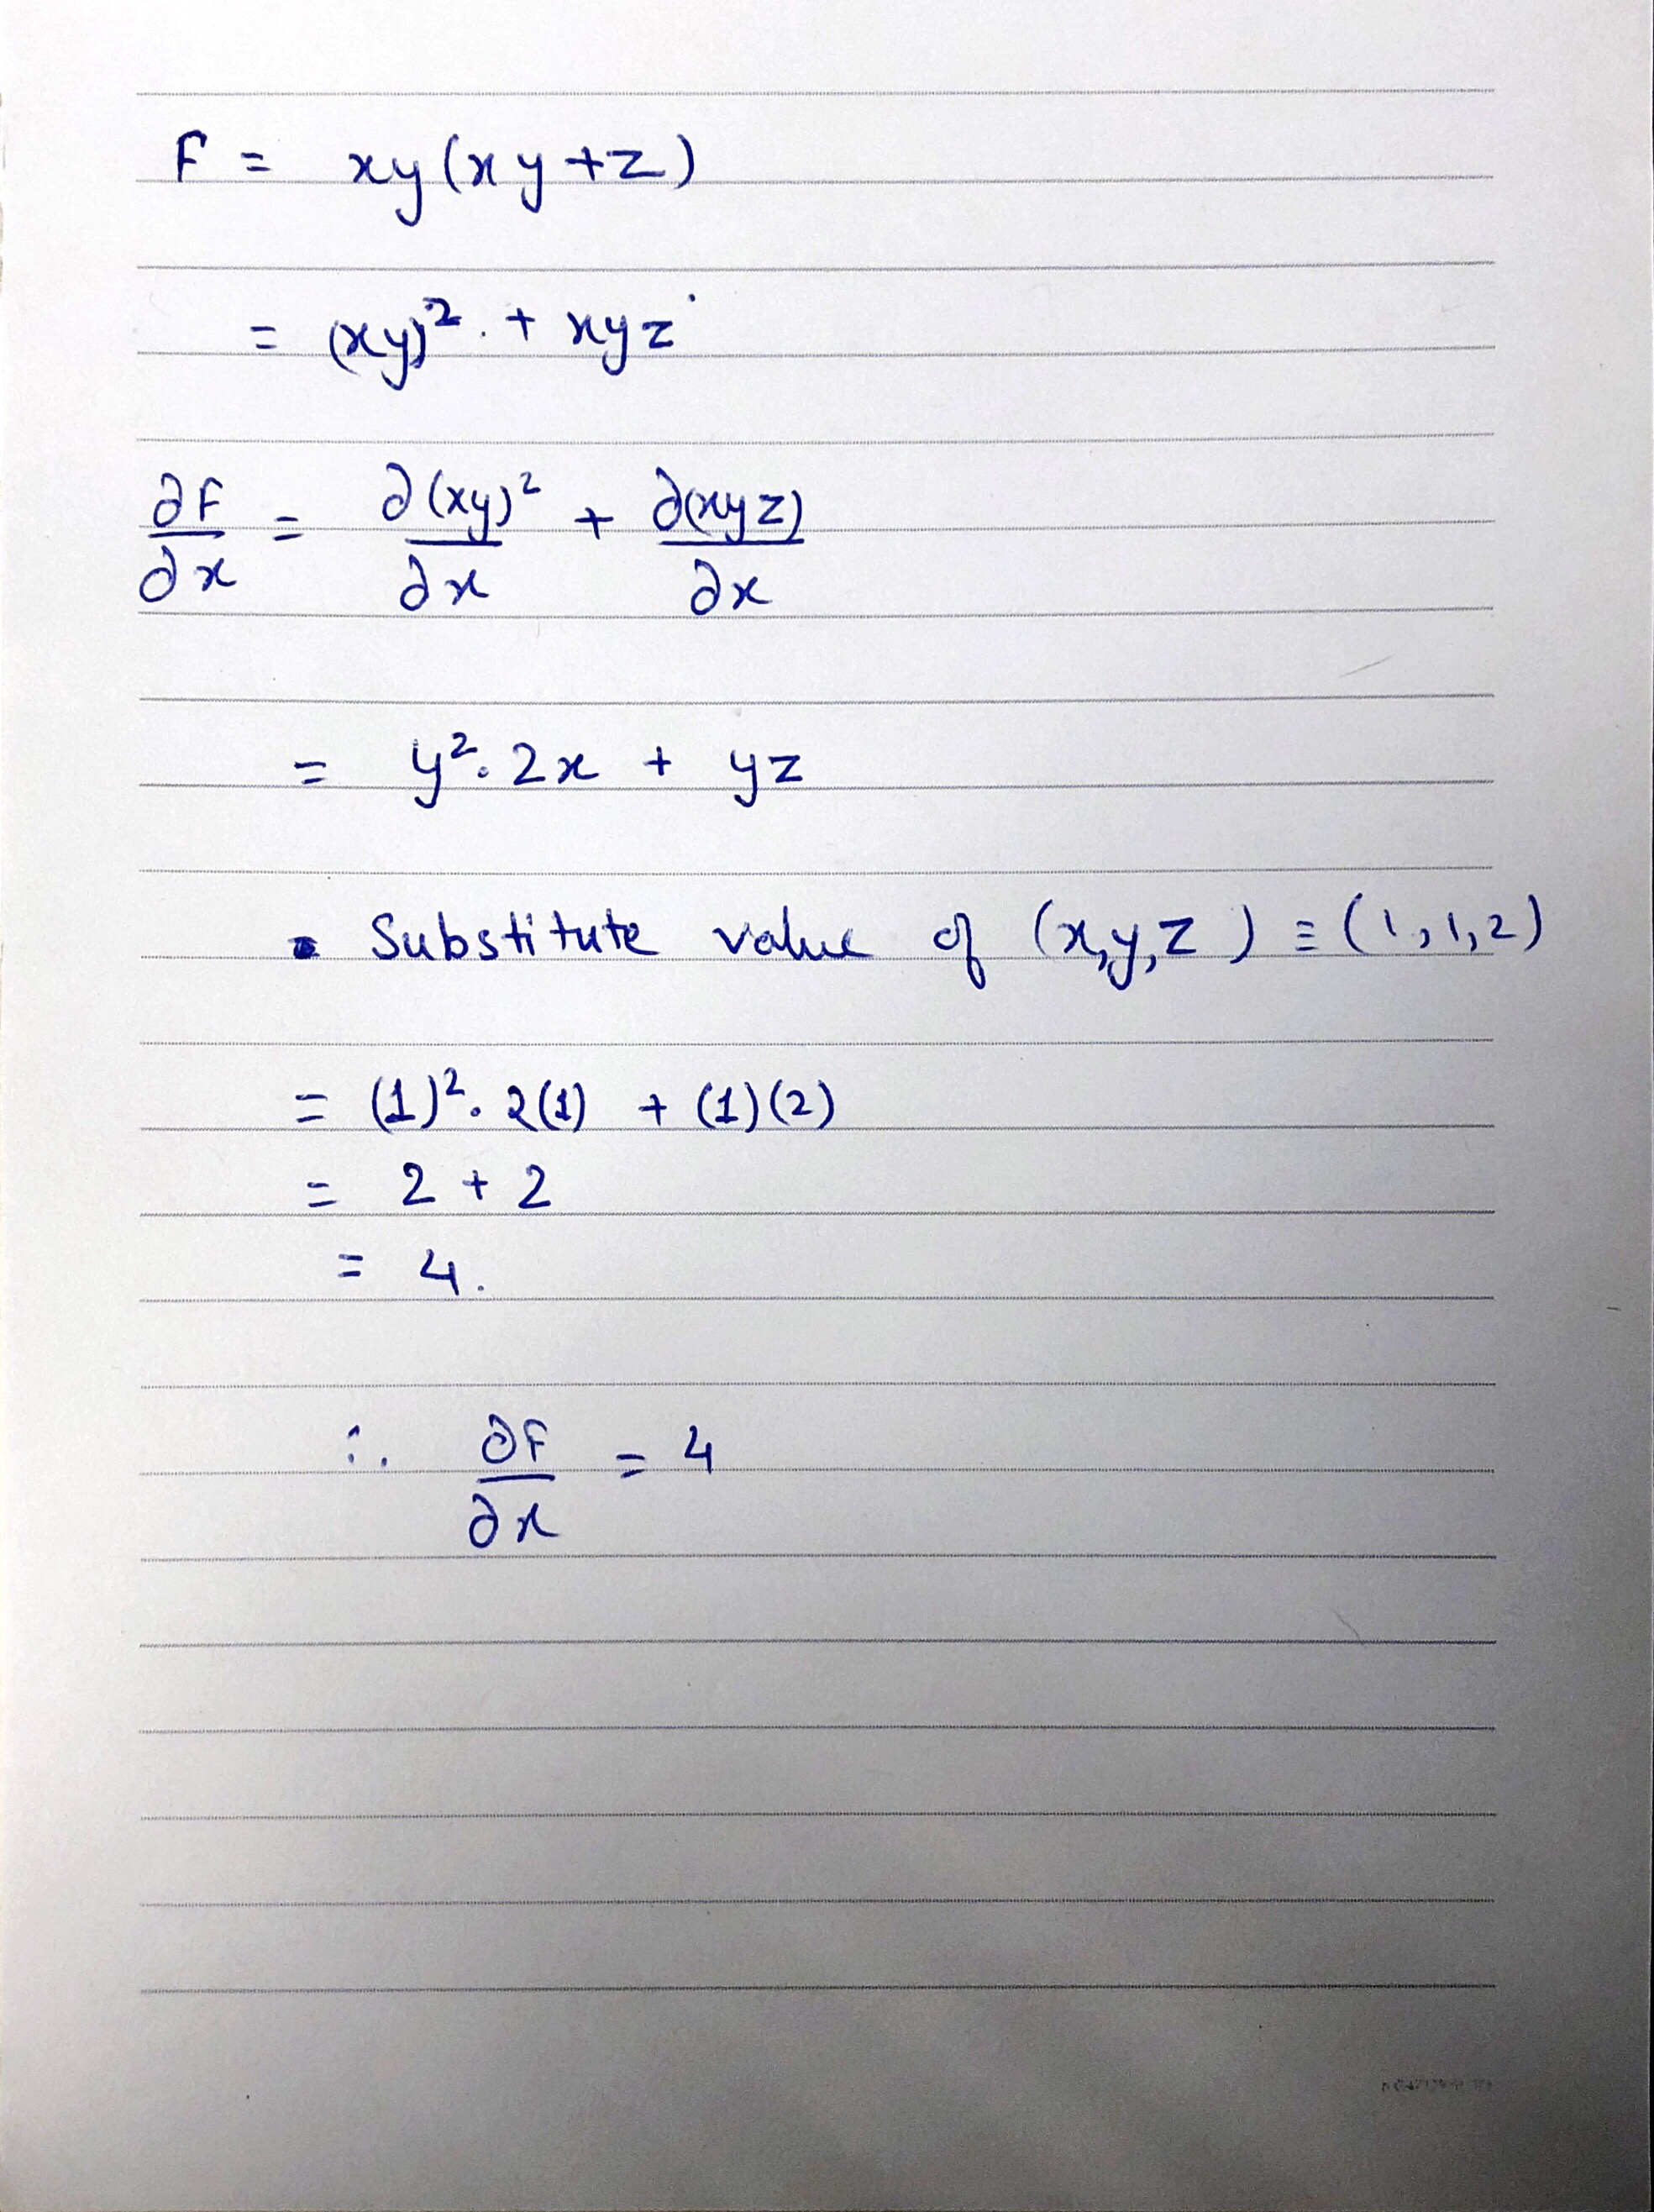 F = xy(xy+z)
= (xy)². + xyz
∂F/∂x = ∂(xy)²/∂x + ∂(xyz)/∂x
= y². 2x + yz
Substitute value of (x,y,z) ≡ (1,1,2)
= (1)². 2(1) + (1)(2)
= 2 + 2
= 4.
∴ ∂F/∂x = 4